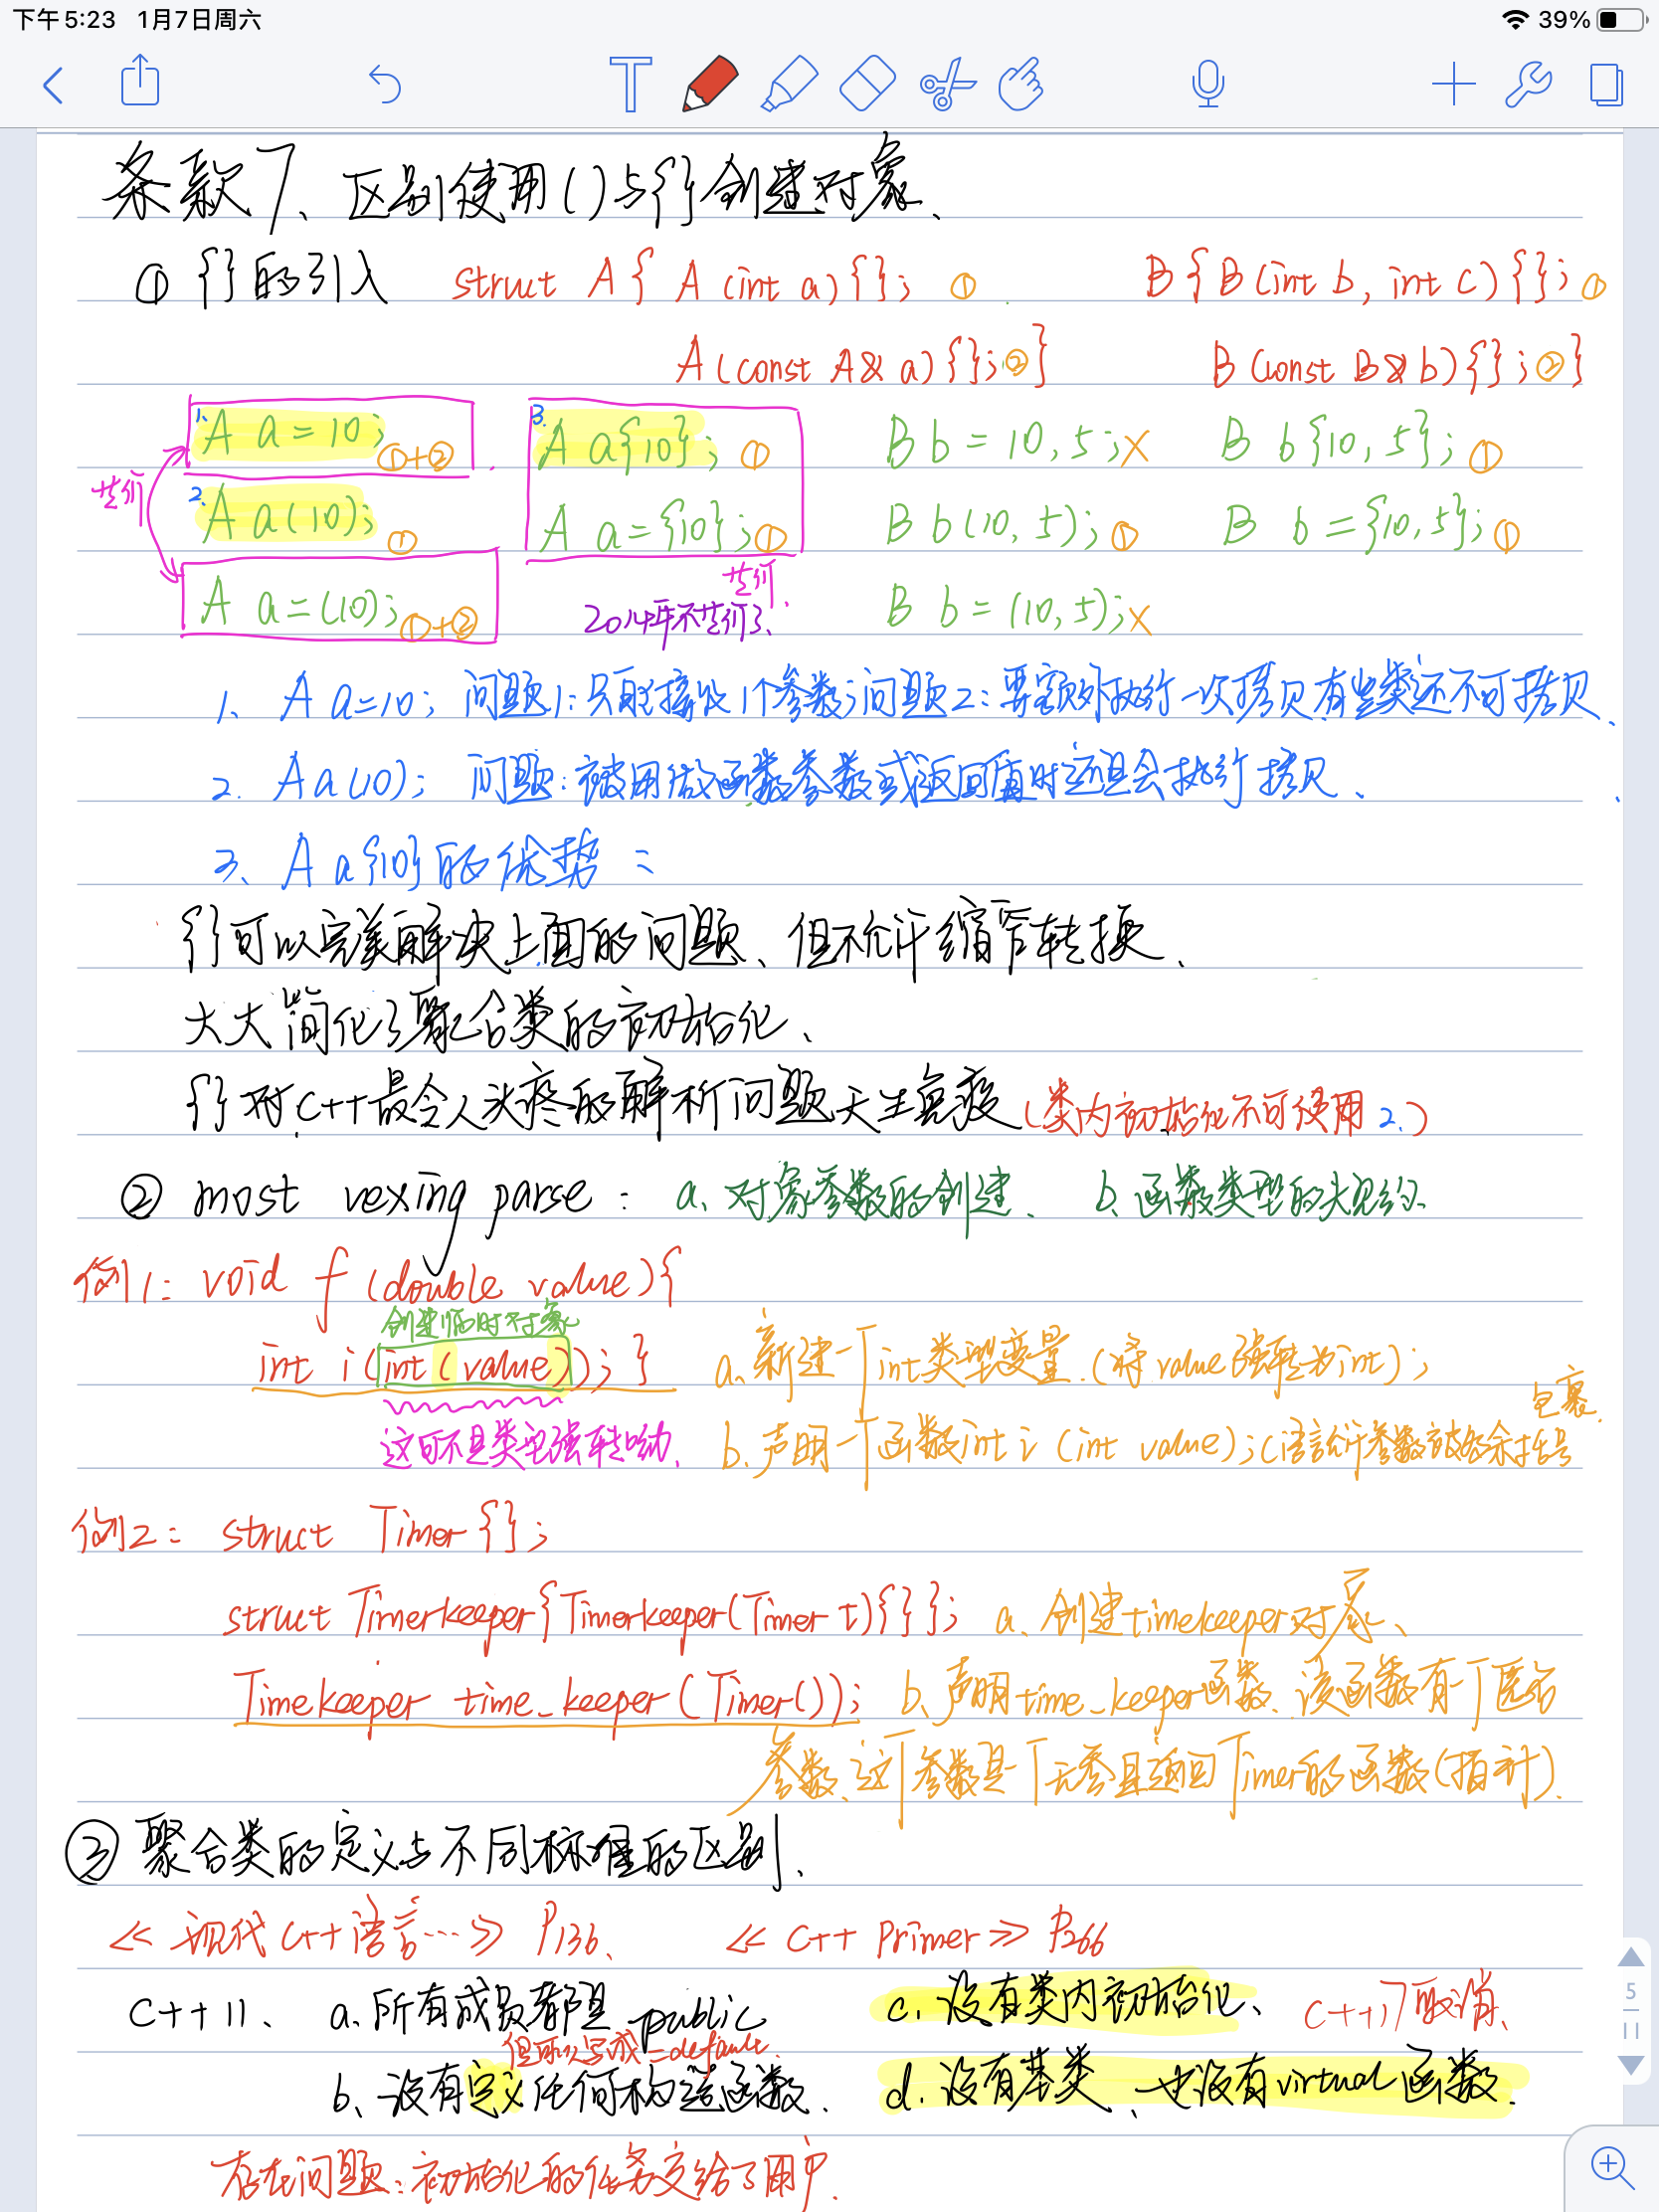 下午5:23 1月7日周六 39%
条款7、区别使用()与{}创建对象、
① {}的引入 struct A{ A(int a){}; ① B{B(int b, int c){}; ①
A(const A& a){}; ②} B(const B& b){}; ②}
1. A a=10; ①+② 3. A a{10}; ① B b = 10, 5; X B b{10, 5}; ①
等价
2. A a(10); ① A a={10}; ① B b(10, 5); ① B b={10,5}; ①
等价.
A a=(10); ①+② 2014年不等价了、 B b = (10, 5); X
1、 A a=10; 问题1:只能接收1个参数;问题2:要额外执行一次拷贝,有些类还不可拷贝、
2. A a(10); 问题:被用做函数参数或返回值时还是会执行拷贝、
3、A a{10}的优势:
{}可以完美解决上面的问题、但不允许缩窄转换、
大大简化了聚合类的初始化、
{}对C++最令人头疼的解析问题天生免疫(类内初始化不可使用2.)
② most vexing parse: a、对象参数的创建、 b、函数类型的声明
例1: void f(double value){
创建临时对象
int i(int(value)); } a、新建一个int类型变量.(将value强转为int);
包裹.
这可不是类型强转呦、 b、声明一个函数int i (int value);(语言允许参数被多余括号
例2: struct Timer{};
struct Timerkeeper{Timerkeeper(Timer t){}}; a、创建timekeeper对象、
Timekeeper time_keeper(Timer()); b、声明time_keeper函数、该函数有一个匿名
参数、这个参数是个无参且返回Timer的函数(指针).
③ 聚合类的定义与不同标准的区别、
≪现代C++语言…≫ P136、 ≪C++ Primer≫ P266
C++11、 a、所有成员都是public c.没有类内初始化、 C++17取消、
但可以写成=default.
b、没有定义任何构造函数. d.没有基类、也没有virtual函数.
存在问题:初始化的任务交给了用户.
5
11